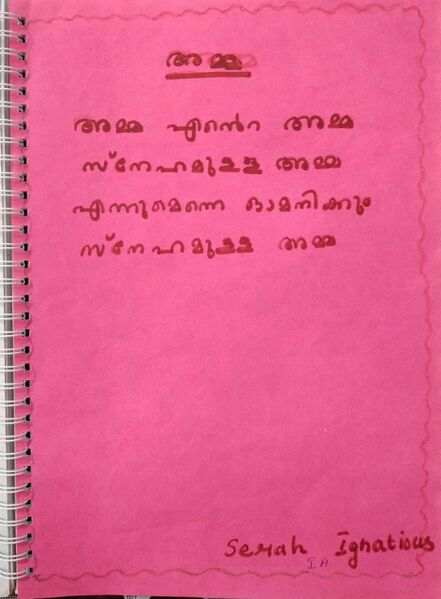 അമ്മ
അമ്മ എൻെറ അമ്മ
സ്നേഹമുള്ള അമ്മ
എന്നുമെന്നെ ഓമനിക്കും
സ്നേഹമുള്ള അമ്മ
Serah Ignatious
I A